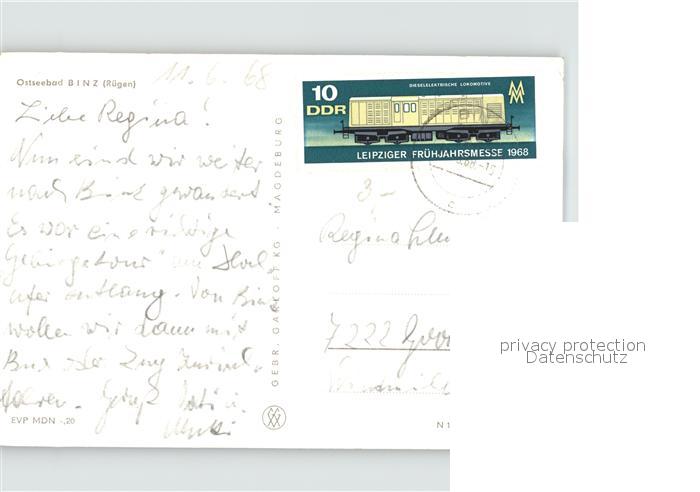 Ostseebad BINZ (Rügen)
11. 6. 68
Liebe Regina!
Nun sind wir weiter
nach Binz gewandert.
Es war eine richtige
"Gebirgstour" am
ufer entlang. Von Binz
wollen wir dann mit
Bus oder Zug zurück-
fahren. Gruß
EVP MDN -,20
GEBR. GARLOFF KG · MAGDEBURG
10
DDR
DIESELELEKTRISCHE LOKOMOTIVE
MM
LEIPZIGER FRÜHJAHRSMESSE 1968
3,-
Regina
7222
N 1
privacy protection
Datenschutz